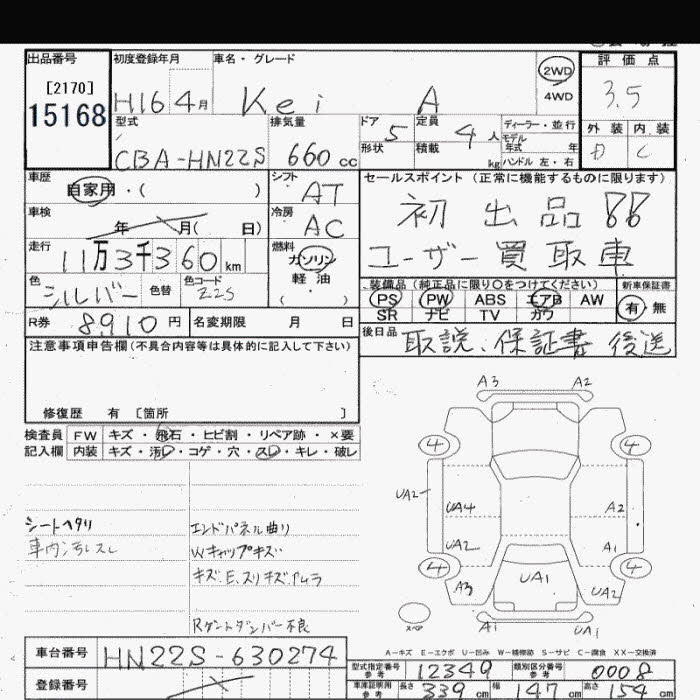 出品番号
[2170]
15168
初度登録年月
H16 4月
車名・グレード
Kei A
2WD
4WD
評価点
3.5
外装 内装
D C
型式
CBA-HN22S
排気量
660 cc
ドア 5
形状
定員 4 人
積載 kg
ディーラー・並行
モデル
年式 年
ハンドル 左・右
車歴
自家用・( )
シフト
AT
車検
年 月( 日)
冷房
AC
走行
11万3千360 km
燃料
ガソリン
軽油
( )
色
シルバー
色替
色コード
Z2S
R券 8910 円
名変期限 月 日
セールスポイント (正常に機能するものに限ります)
初出品!!
ユーザー買取車
装備品 (純正品に限り〇をつけてください)
新車保証書
PS PW ABS エアB AW
SR ナビ TV カワ
有・無
後日品
取説、保証書 後送
注意事項申告欄 (不具合内容等は具体的に記入して下さい)
修復歴 有 [箇所 ]
検査員
記入欄
FW キズ・飛石・ヒビ割・リペア跡・×要
内装 キズ・汚レ・コゲ・穴・スレ・キレ・破レ
シートヘタリ
車内汚レスレ
エンドパネル曲り
Wキャップキズ
キズ、E、スリキズ、ムラ
Rゲートダンパー不良
A3 A2
4 4
UA2 UA4 A2
UA2 A1
4 4
A3 UA1 UA2
A1 UA1
A-キズ E-エクボ U-凹み W-補修跡 S-サビ C-腐食 XX-交換済
車台番号
HN22S-630274
登録番号
型式指定番号
参考
12349
類別区分番号
参考
0008
車庫証明用
参考
長さ 339 cm
幅 147 cm
高さ 154 cm